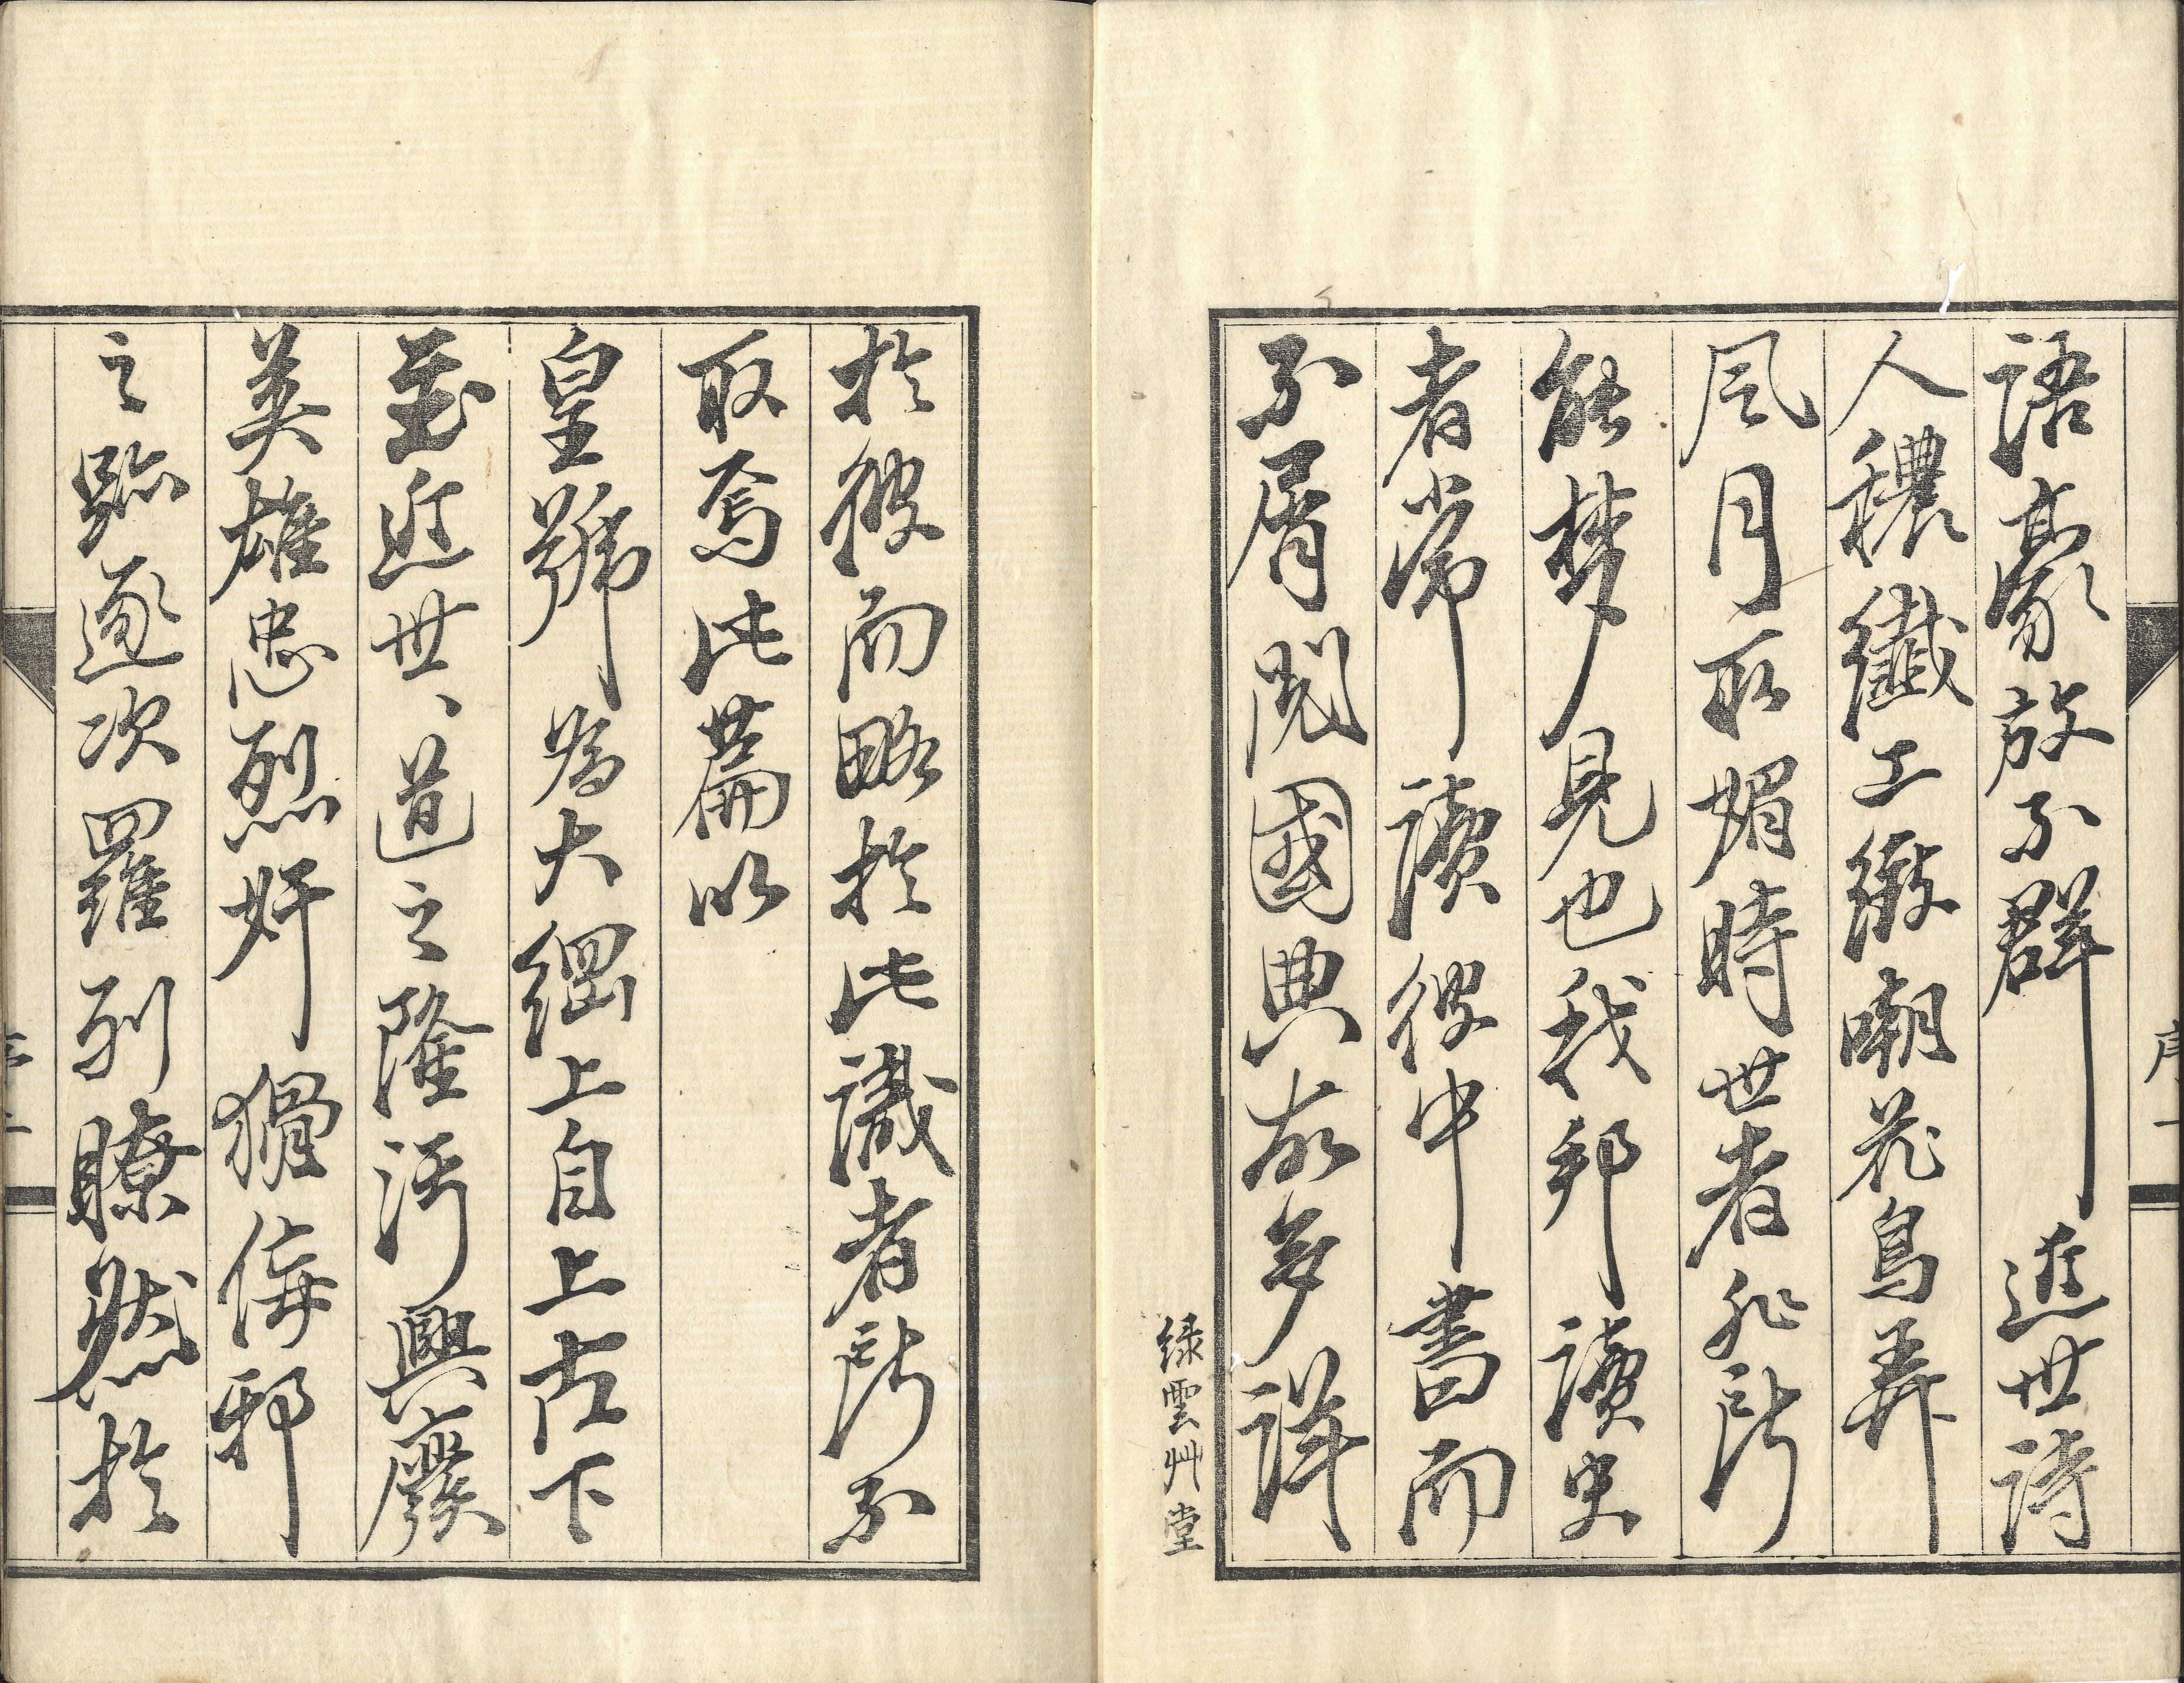 語豪放不群近世詩
人穠纖工緻嘲花鳥弄
風月取媚時世者非所
能夢見也我邦讀史
者常讀彼中書而
不屑閱國典故多詳
綠雲艸堂
於彼而略於此識者所不
取焉此篇以
皇號為大綱上自上古下
至近世、道之隆汚興廢
英雄忠烈奸猾倖邪
之跡逐次羅列瞭然於
序一